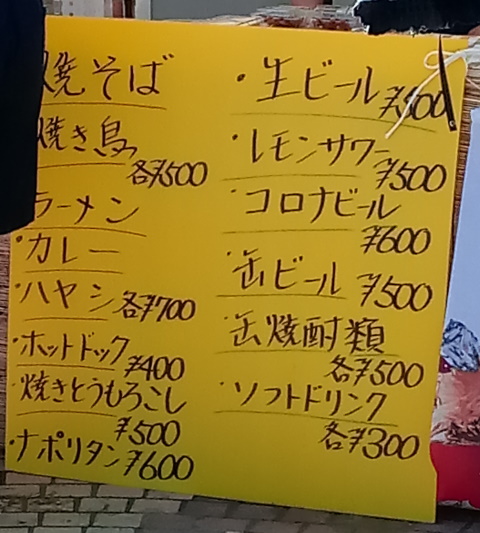 焼そば
焼き鳥
各¥500
ラーメン
カレー
・ハヤシ 各¥700
・ホットドック ¥400
・焼きとうもろこし
¥500
・ナポリタン ¥600
・生ビール ¥500
・レモンサワー
¥500
・コロナビール
¥600
・缶ビール ¥500
・缶焼酎類
各¥500
・ソフトドリンク
各¥300